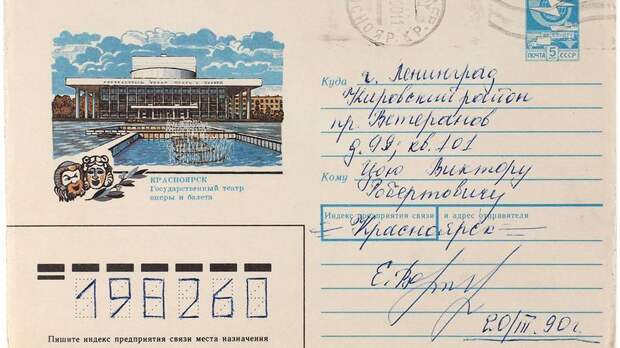 КРАСНОЯР
ПОЧТА 5 СССР
КРАСНОЯРСК
Государственный театр
оперы и балета
Куда г. Ленинград
Кировский район
пр. Ветеранов
д. 99; кв. 101
Кому Цою Виктору
Робертовичу
Индекс предприятия связи и адрес отправителя
Красноярск
20/III. 90г.
198260
Пишите индекс предприятия связи места назначения